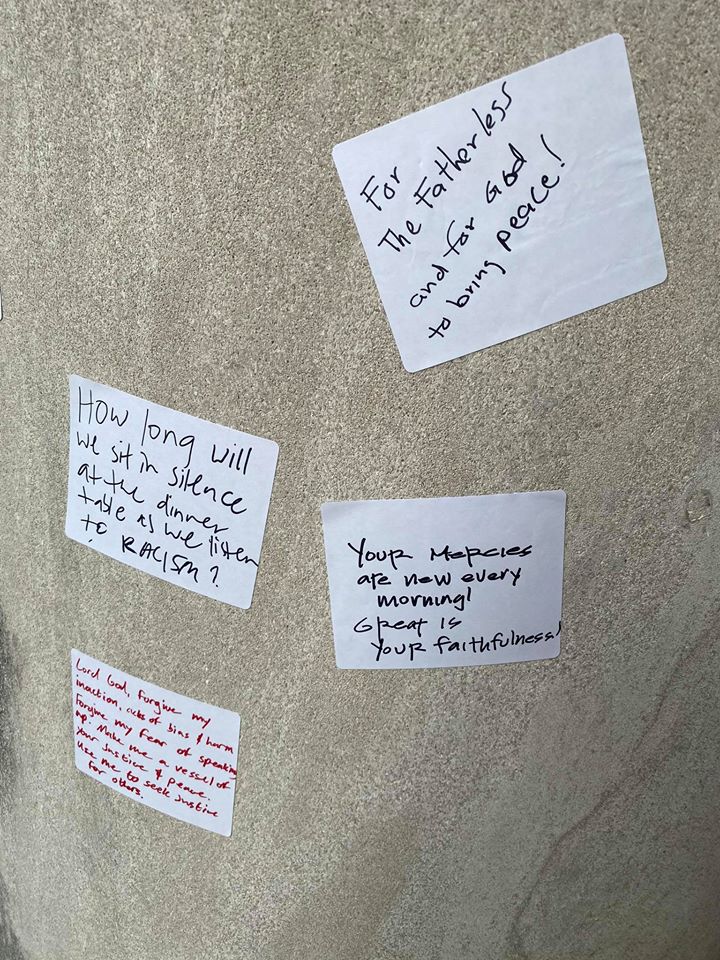 For
The Fatherless
and for God
to bring peace!
How long will
we sit in silence
at the dinner
table as we listen
to RACISM?
Your Mercies
are new every
morning!
Great is
your faithfulness!
Lord God, forgive my
inaction, acts of bias & harm
Forgive my fear of speaking
up. Make me a vessel of
your Justice & peace.
Use me to seek Justice
for others.